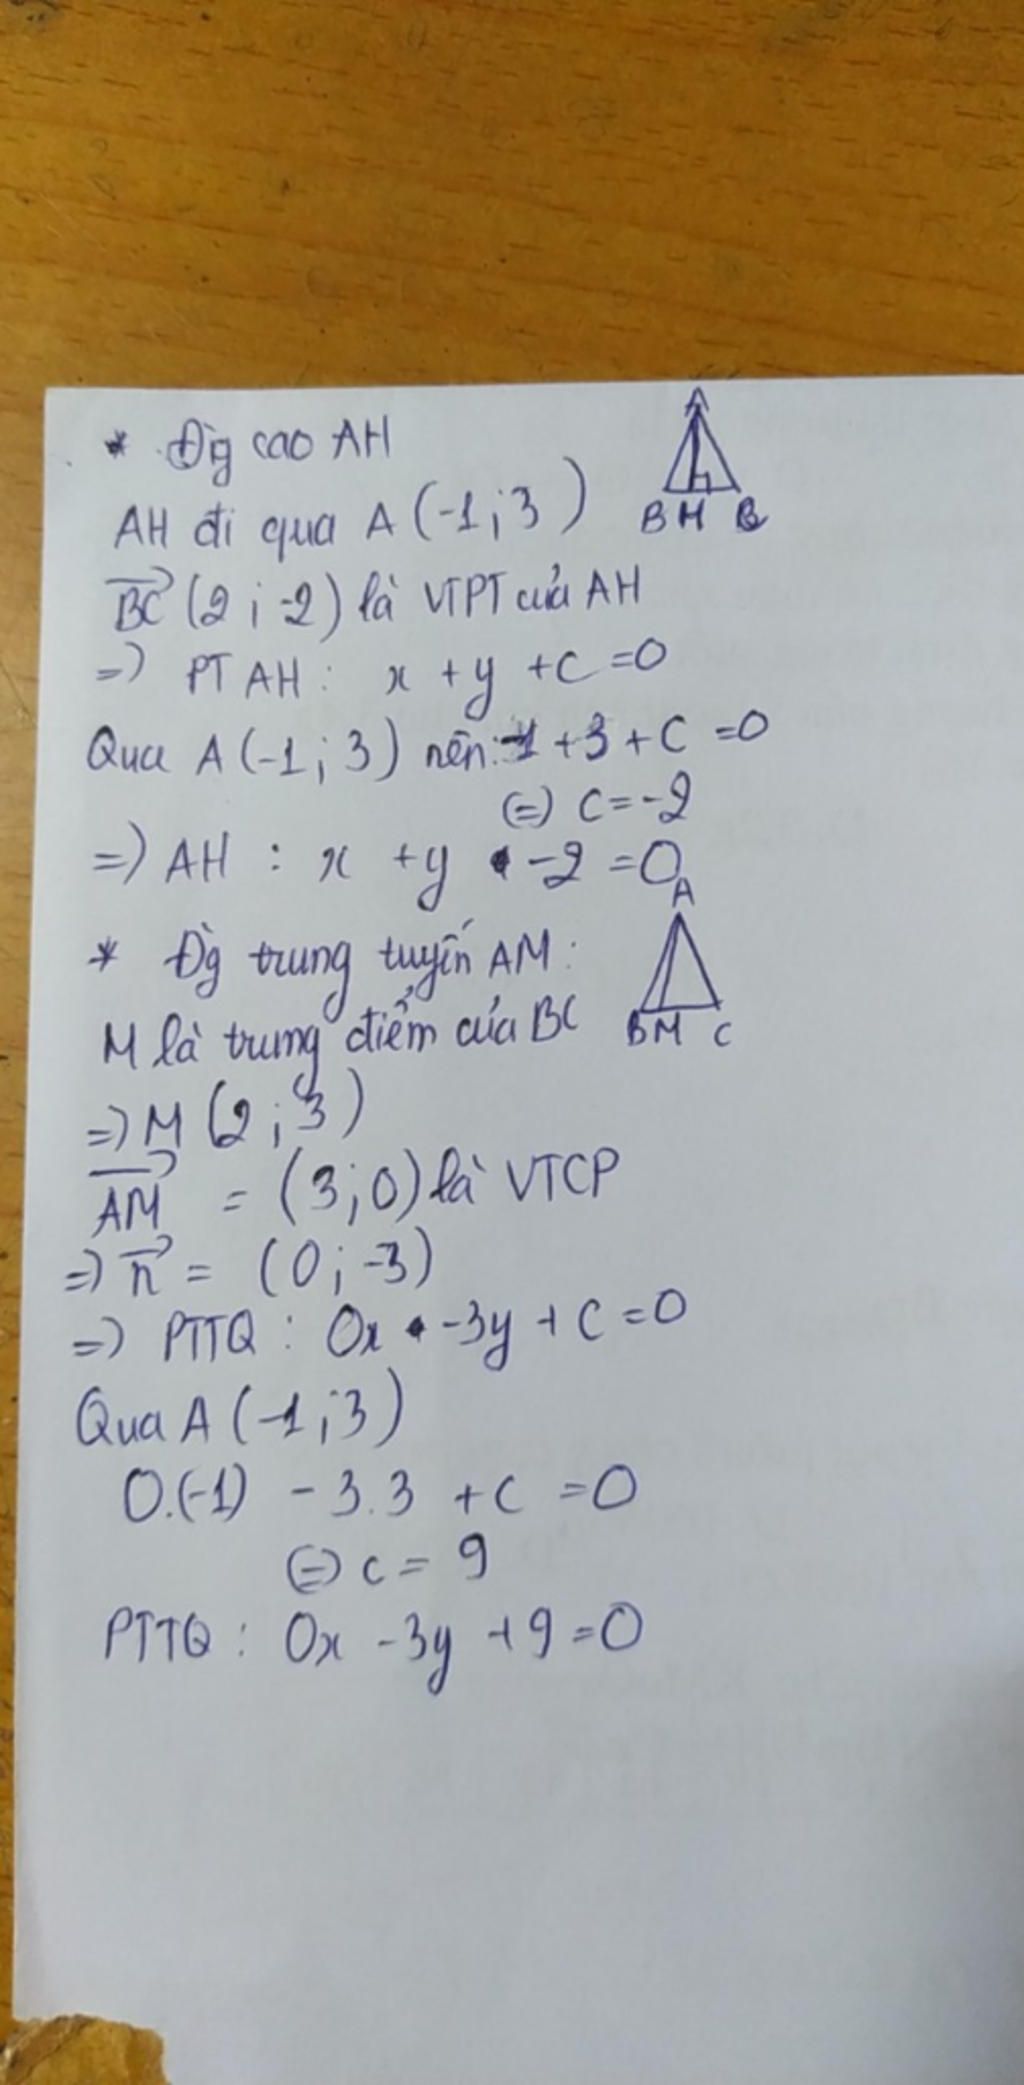 * Đg cao AH
A
AH đi qua A (-1; 3)
B H B
BC (2; -2) là VTPT của AH
=> PT AH : x + y + C = 0
Qua A (-1; 3) nên: -1 + 3 + C = 0
(=) C = -2
=> AH : x + y - 2 = 0
A
* Đg trung tuyến AM :
M là trung điểm của BC
B M C
=> M (2; 3)
AM = (3; 0) là VTCP
=> n = (0; -3)
=> PTTQ : 0x - 3y + C = 0
Qua A (-1; 3)
0.(-1) - 3.3 + C = 0
(=) C = 9
PTTQ : 0x - 3y + 9 = 0